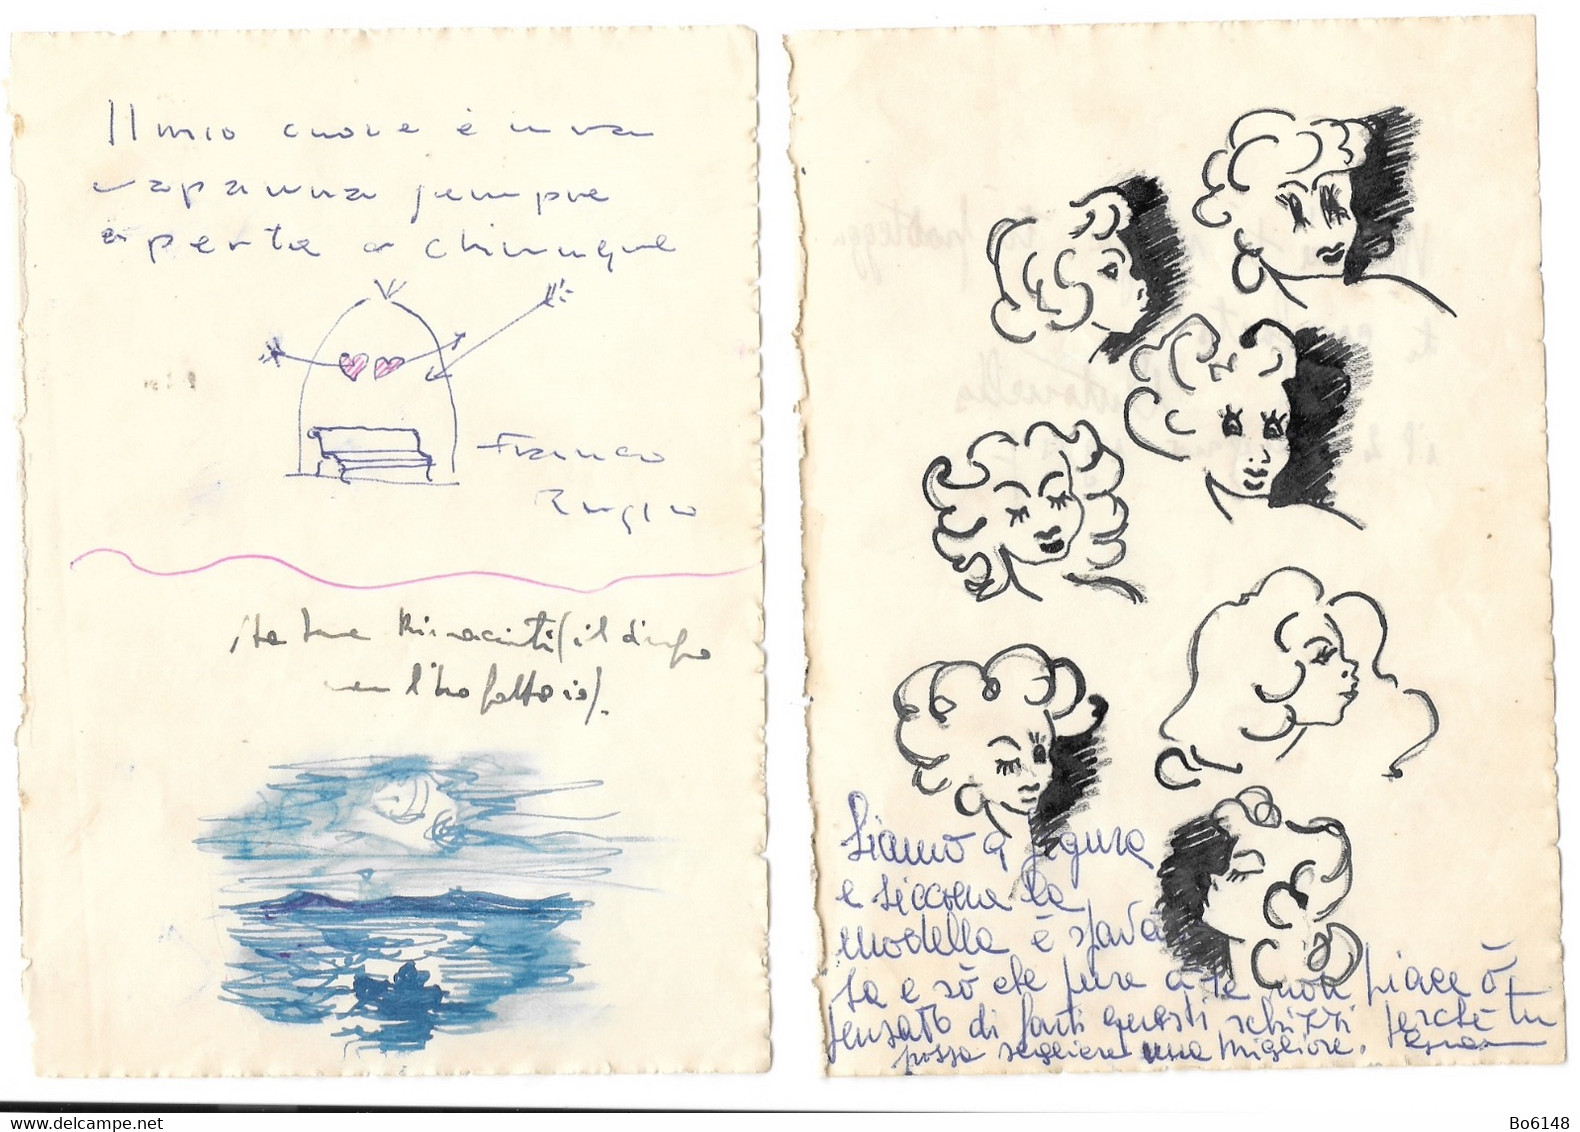 Il mio cuore è una
capanna sempre
aperta a chiunque
Franco
(il disegno
non l'ho fatto io).
Siamo a figura
e siccome la
modella è sfava
ta e sò che pure a te non piace ò
pensato di farti questi schizzi perchè tu
possa scegliere una migliore.
ti protegga
Antonella
delcampe.net
Bo6148